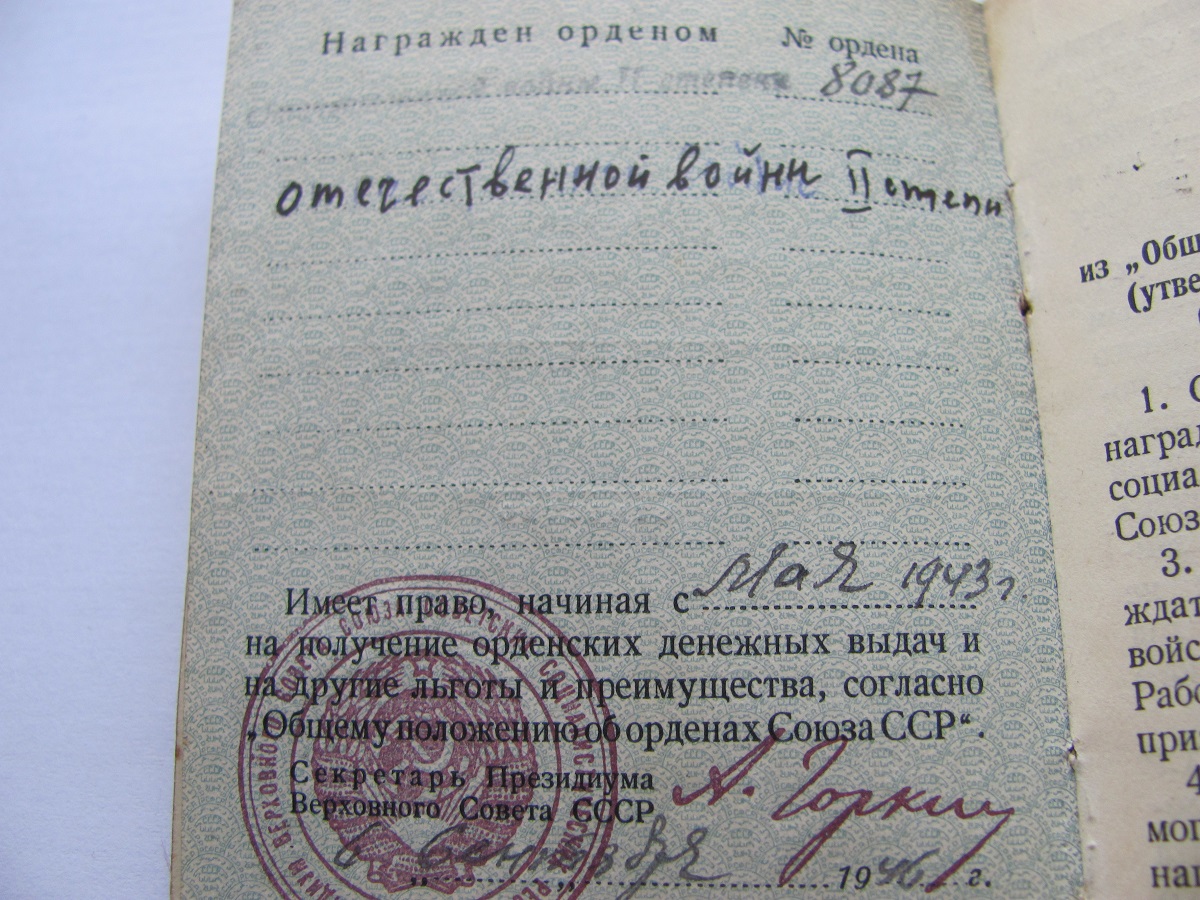 Награжден орденом № ордена
войны II степени 8087
отечественной войны II степени
Имеет право, начиная с Мая 1943 г.
на получение орденских денежных выдач и
на другие льготы и преимущества, согласно
„Общему положению об орденах Союза ССР“.
Секретарь Президиума
Верховного Совета СССР
А. Горкин
6 Сентября 1946 г.
из „Общ
(утве
1. С
наград
социа
Союз
3.
ждат
войс
Рабо
при
4
мог
наг